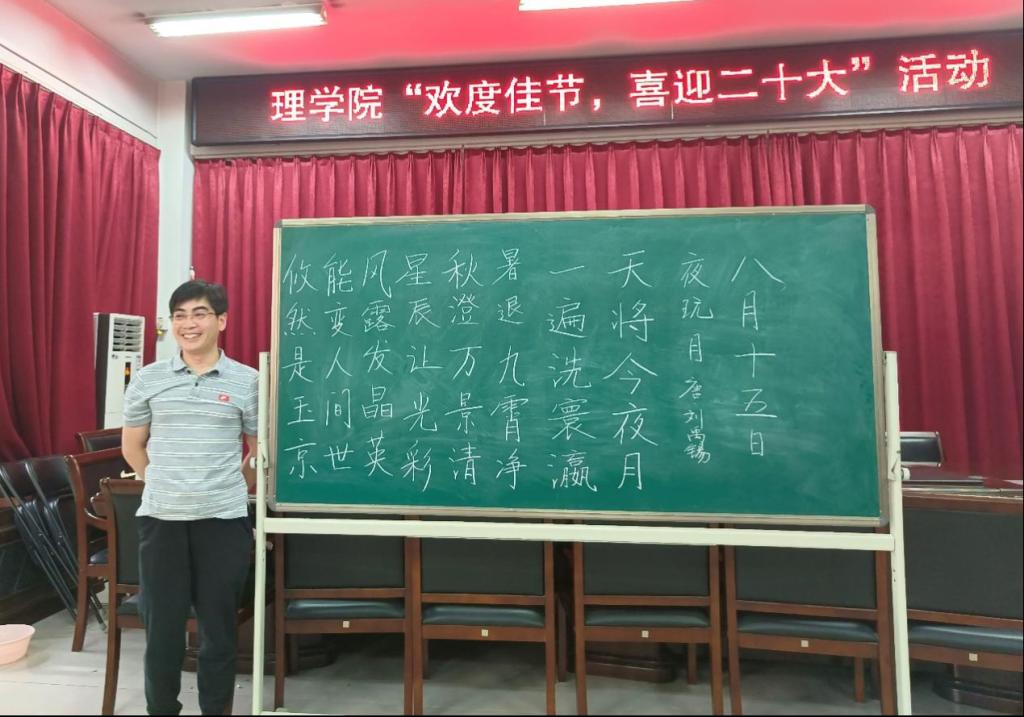 理学院“欢度佳节，喜迎二十大”活动
八月十五日
夜玩月 唐刘禹锡
天将今夜月
一遍洗寰瀛
暑退九霄净
秋澄万景清
星辰让光彩
风露发晶英
能变人间世
攸然是玉京